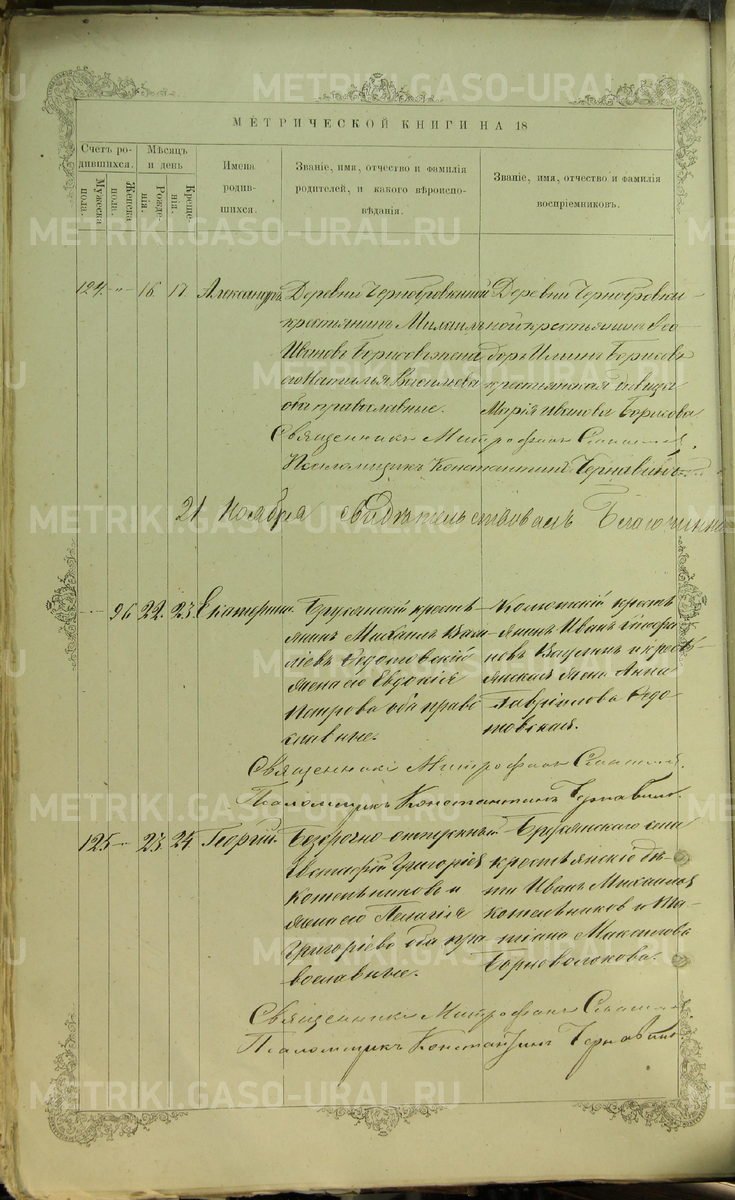 METRIKI.GASO-URAL.RU METRIKI.GASO-URAL.RU
МЕТРИЧЕСКОЙ КНИГИ НА 18
Счетъ родившихся.
Мужеска пола.
Женска пола.
Мѣсяцъ и день
Рожденія.
Крещенія.
Имена родившихся.
Званіе, имя, отчество и фамилія родителей, и какого вѣроисповѣданія.
Званіе, имя, отчество и фамилія воспріемниковъ.
124. -"- 16. 17. Александръ.
Деревни
крестьянинъ Михаилъ
Ивановъ Борисовъ жена
его Наталья
оба православные.
Деревни
крестьянинъ Ѳео
доръ Борисовъ
крестьянская дѣвица
Марія Иванова Борисова
Священникъ Митрофанъ
Псаломщикъ Константинъ Чернавинъ
21 Ноября свидѣтельствовалъ Благочинный
96. 22. 23. Екатерина.
Бруянскій кресть
янинъ Михаилъ Васи
ліевъ Ѳедотовскій
жена его Евдокія
Петрова оба право
славные.
крестъ
янинъ Иванъ
новъ и кресть
янская жена Анна
Гавріилова Ѳедо
товская.
Священникъ Митрофанъ
Псаломщикъ Константинъ Чернавинъ.
125 -"- 23. 24. Георгій.
Безсрочно-отпускный
Евстафій Григоріевъ
Котельниковъ и
жена его Пелагія
Григоріева оба пра
вославные.
Бруянскаго села
крестьянскіе дѣ
ти Иванъ Михаиловъ
Котельниковъ и Та
тіана Максимова
Черноволокова.
Священникъ Митрофанъ
Псаломщикъ Константинъ Чернавинъ